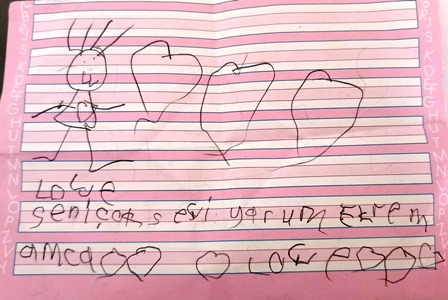 Lowe
seniçok s evi yorum Ekrem
amca Lowe